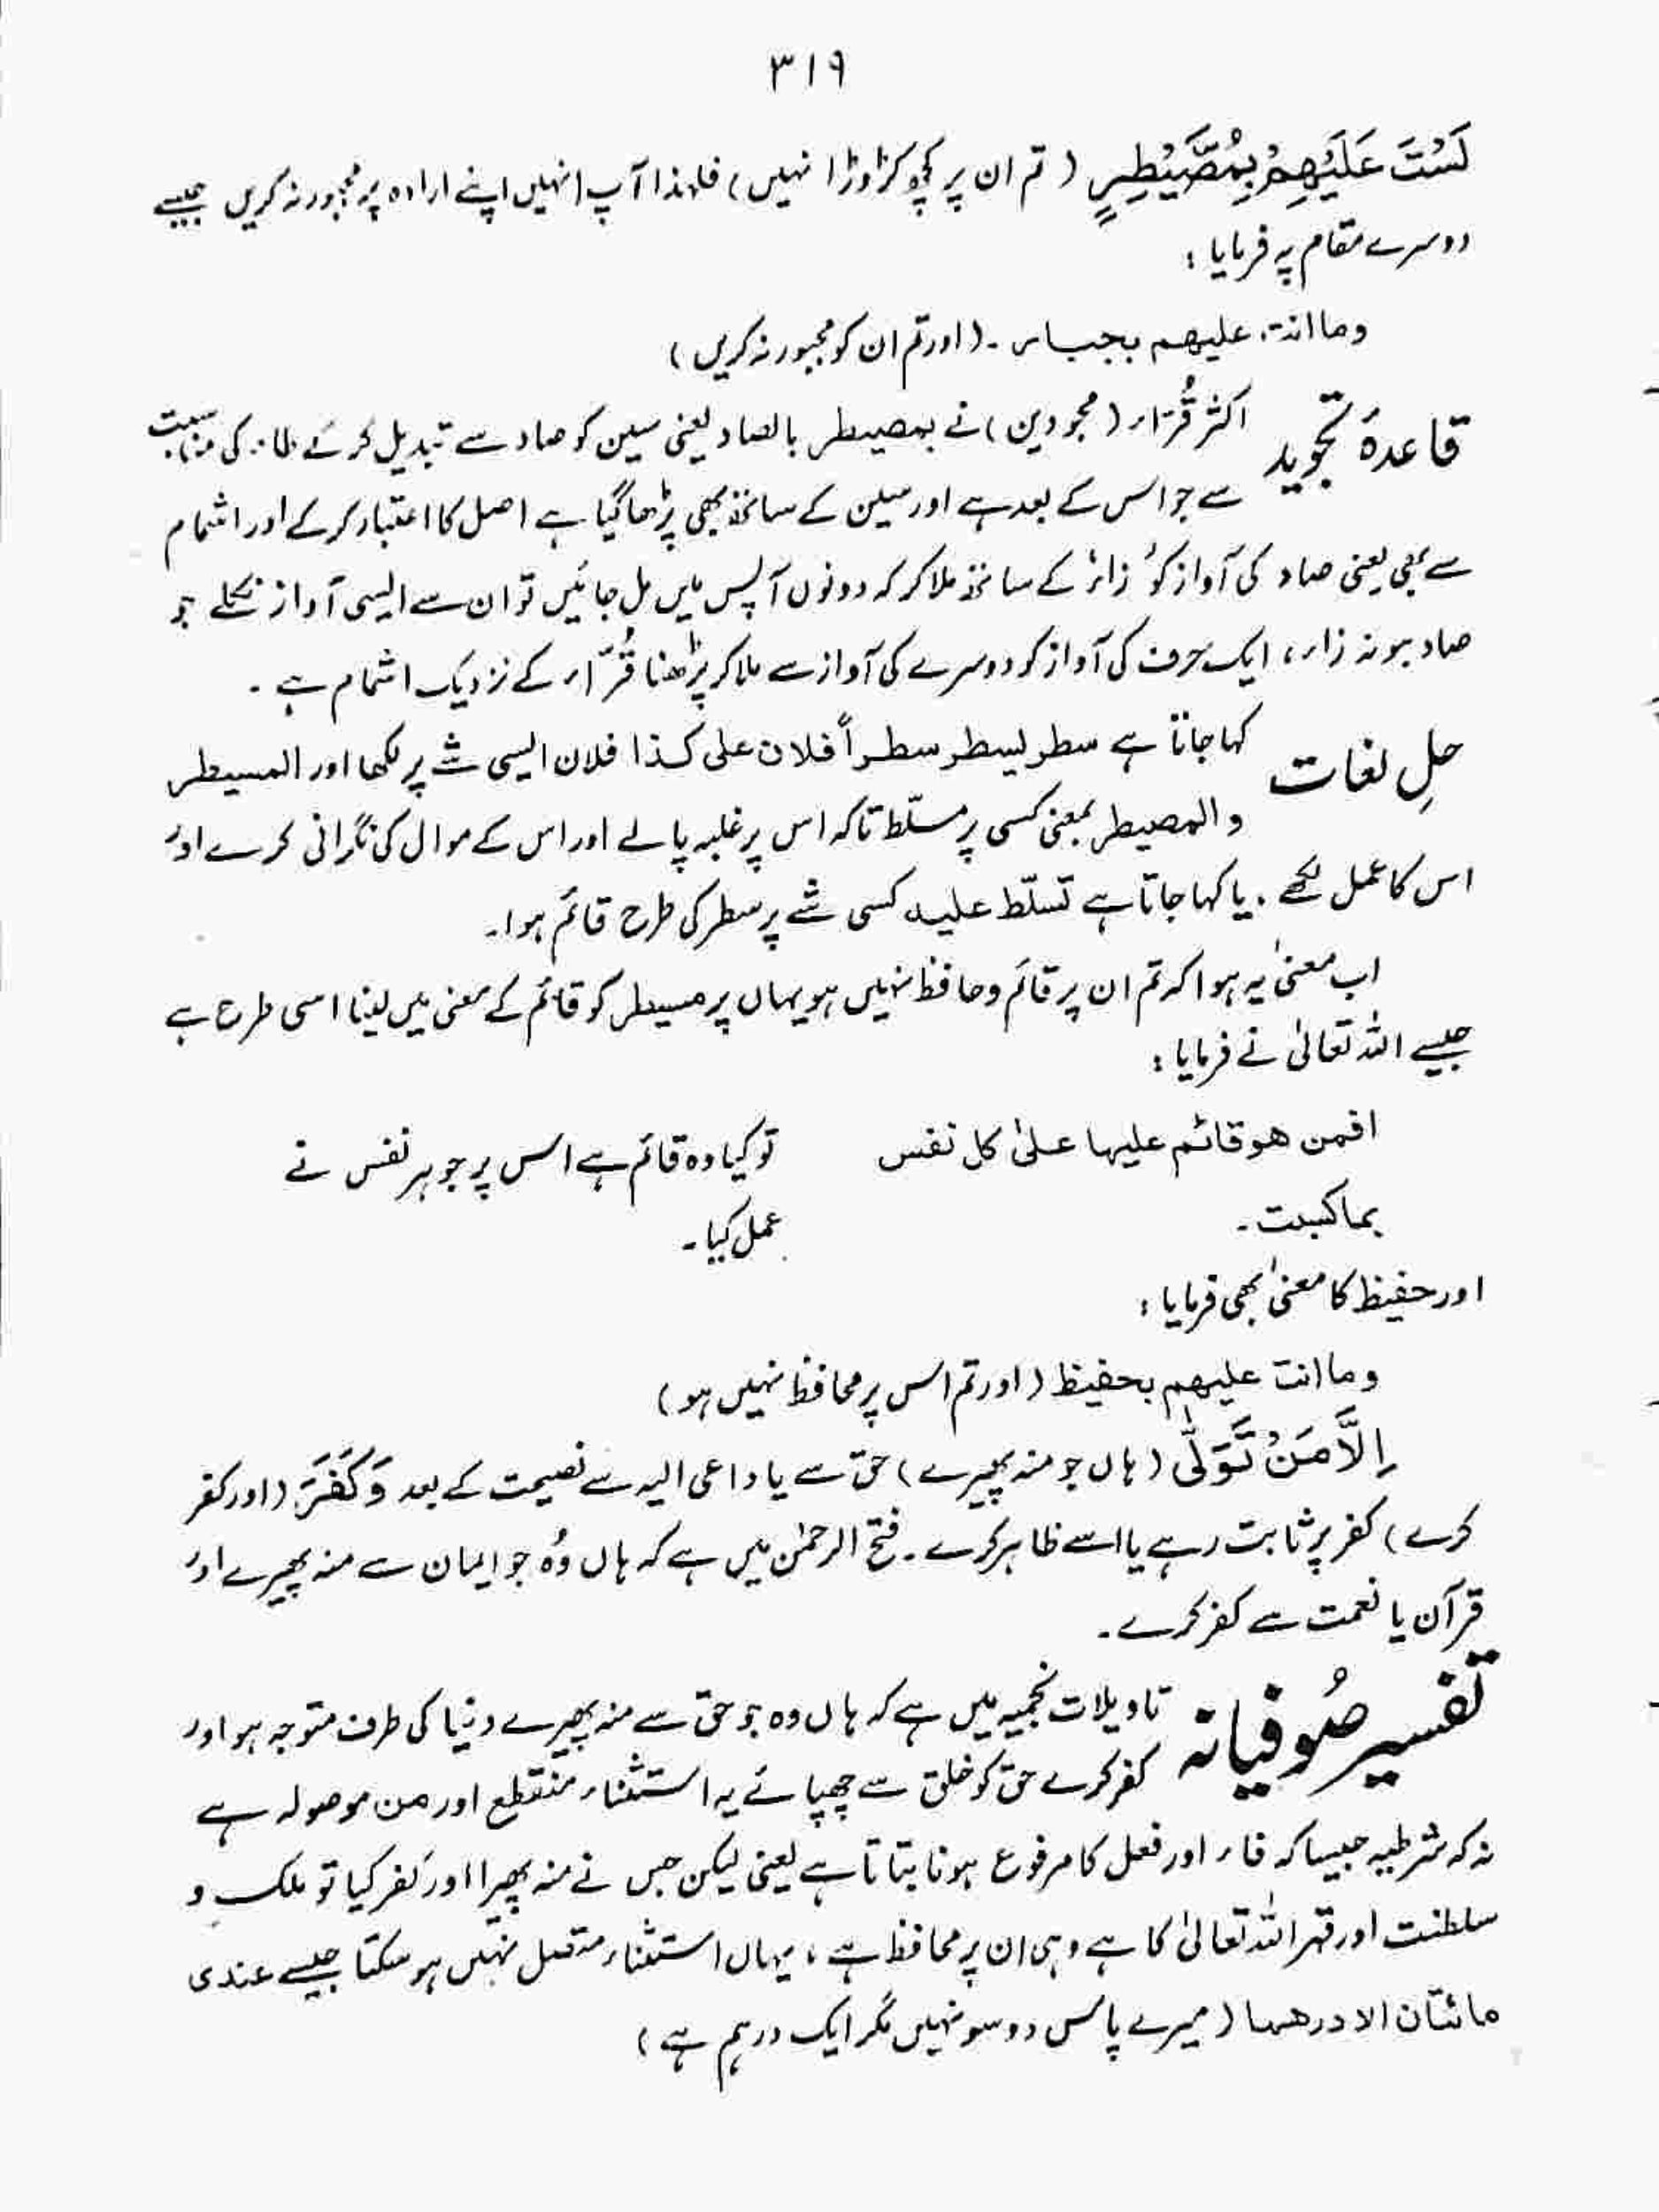 ۳۱۹
لَسْتَ عَلَيْهِمْ بِمُصَۜيْطِرٍ (تم ان پر کچھ کڑوڑا نہیں) فلہٰذا آپ انہیں اپنے ارادہ پر مجبور نہ کریں جیسے
دوسرے مقام پہ فرمایا :
وما انت علیھم بجبار ۔ (اور تم ان کو مجبور نہ کریں)
قاعدۂ تجوید اکثر قُرّاء (مجودین) نے بمصیطر بالصاد یعنی سین کو صاد سے تبدیل کرکے طاء کی مناسبت
سے جو اس کے بعد ہے اور سین کے ساتھ بھی پڑھا گیا ہے اصل کا اعتبار کرکے اور اشمام
سے بھی یعنی صاد کی آواز کو زائز کے ساتھ ملا کر کہ دونوں آپس میں مل جائیں تو ان سے ایسی آواز نکلے جو
صاد ہو نہ زاء، ایک حرف کی آواز کو دوسرے کی آواز سے ملا کر پڑھنا قُرّاء کے نزدیک اشمام ہے ۔
حلِ لغات کہا جاتا ہے سطر لیسطر سطراً فلان علی کذا فلاں ایسی شے پر لکھا اور المسیطر
و المصیطر بمعنی کسی پر مسلّط تاکہ اس پر غلبہ پالے اور اس کے موال کی نگرانی کرے اور
اس کا عمل لکھے ۔ یا کہا جاتا ہے تسلّط علیہ کسی شے پر سطر کی طرح قائم ہوا۔
اب معنیٰ یہ ہوا کہ تم ان پر قائم و حافظ نہیں ہو یہاں پر مسیطر کو قائم کے معنی میں لینا اسی طرح ہے
جیسے اللہ تعالیٰ نے فرمایا :
افمن ھو قائم علیہا علیٰ کل نفس تو کیا وہ قائم ہے اس پر جو ہر نفس نے
بما کسبت ۔ عمل کیا ۔
اور حفیظ کا معنیٰ بھی فرمایا :
وما انت علیھم بحفیظ (اور تم اس پر محافظ نہیں ہو)
اِلَّا مَنْ تَوَلّٰى (ہاں جو منہ پھیرے) حق سے یا داعی الیہ سے نصیحت کے بعد وَ كَفَرَ (اور کفر
کرے) کفر پر ثابت رہے یا اسے ظاہر کرے ۔ فتح الرحمٰن میں ہے کہ ہاں وہ جو ایمان سے منہ پھیرے اور
قرآن یا نعمت سے کفر کرے ۔
تفسیر صُوفیانہ تاویلات نجمیہ میں ہے کہ ہاں وہ جو حق سے منہ پھیرے دنیا کی طرف متوجہ ہو اور
کفر کرے حق کو خلق سے چھپائے یہ استثناء منقطع اور من موصولہ ہے
نہ کہ شرطیہ جیسا کہ فاء اور فعل کا مرفوع ہونا بتاتا ہے یعنی لیکن جس نے منہ پھیرا اور کفر کیا تو ملک و
سلطنت اور قہر اللہ تعالیٰ کا ہے وہی ان پر محافظ ہے ، یہاں استثناء متصل نہیں ہو سکتا جیسے عندی
مائتان الا درھما (میرے پاس دو سو نہیں مگر ایک درہم ہے)